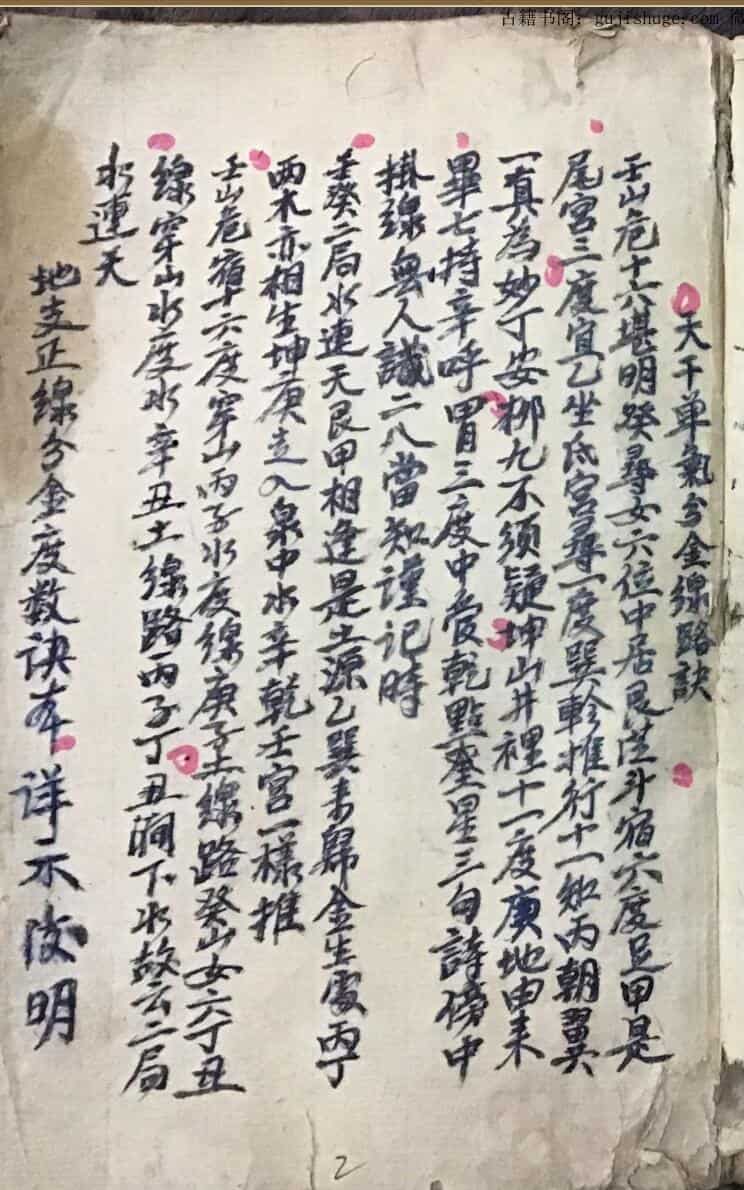 古籍书阁：gujishuge.com
天干单氣分金線路訣
壬山危十六堪明癸尋女六位中居艮茫斗宿六度足甲是
尾宮三度宜乙坐氐宮尋一度巽軫推行十一知丙朝翼
一真為妙丁安柳九不須疑坤山井裡十一度庚地由来
畢七持辛呼胃三度中愛乾點奎星三句詩傍中
掛線無人識二八當知謹记時
壬癸二局水連天艮甲相逢是土源乙巽未歸金生處丙丁
两木亦相生坤庚走入泉中水辛乾壬宮一樣推
壬山危宿十六度穿山丙子水度線庚子土線路癸山女六丁丑
線穿山水度水辛丑土線路丙子丁丑澗下水故云二局
水連天
地支正線分金度数訣年詳示後明
2